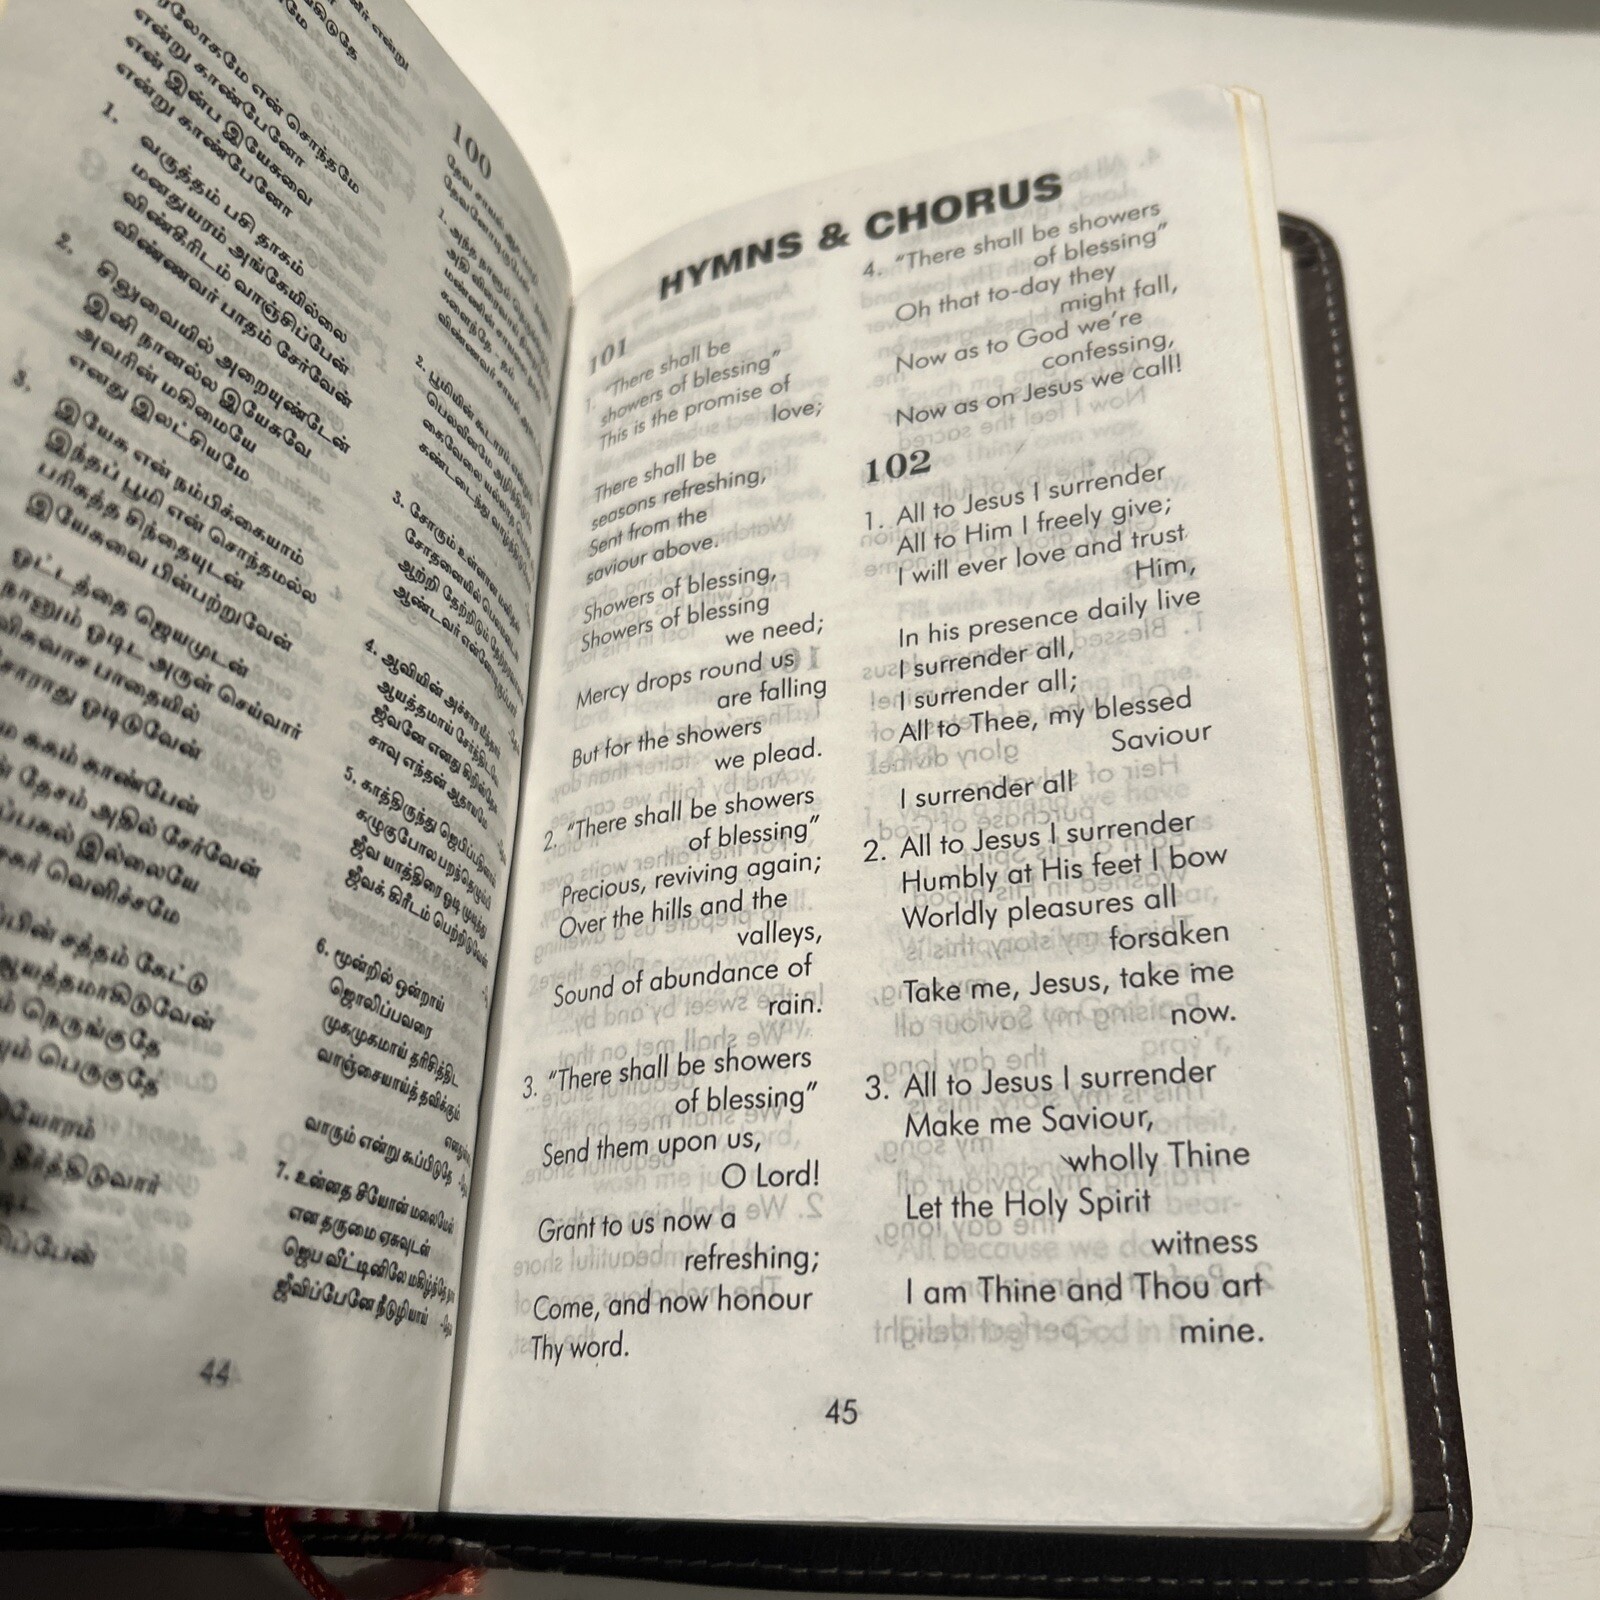 என்று காண்பேனோ
என் இன்ப இயேசுவை
என்று காண்பேனோ
1. வருத்தம் பசி தாகம்
மனதுயரம் அங்கேயில்லை
விண்கிரீடம் வாஞ்சிப்பேன்
விண்ணவர் பாதம் சேர்வேன்
2. சிலுவையில் அறையுண்டேன்
இனி நானல்ல இயேசுவே
அவரின் மகிமையே
எனது இலட்சியமே
3. இயேசு என் நம்பிக்கையாம்
இந்தப் பூமி என் சொந்தமல்ல
பரிசுத்த சிந்தையுடன்
இயேசுவை பின்பற்றுவேன்
ஓட்டத்தை ஜெயமுடன்
நானும் ஓடிட அருள் செய்வார்
விசுவாச பாதையில்
சோராது ஓடிடுவேன்
சுகம் காண்பேன்
தேசம் அதில் சேர்வேன்
இல்லையே
வெளிச்சமே
சத்தம் கேட்டு
ஆயத்தமாகிடுவேன்
நெருங்குதே
பெருகுதே
100
2. பூமியின் கூடாரம்
பெலவீனமே
3. சோரும் உள்ளான
சோதனையில்
ஆற்றி தேற்றிடும்
ஆண்டவர்
4. ஆவியின் அச்சாரம்
ஆயத்தமாய்
ஜீவனே எனது கிறிஸ்து
சாவு எந்தன் ஆதாயமே
5. காத்திருந்து
கழுகுபோல
ஜீவ யாத்திரை ஓடி முடித்து
ஜீவக் கிரீடம் பெற்றிடுவேன்
6. மூன்றில் ஒன்றாய்
ஜொலிப்பவரை
முகமுகமாய் தரிசித்திட
வாஞ்சையாய்த் தவிக்கும்
வாரும் என்று கூப்பிடுதே
7. உன்னத சீயோன் மலையில்
என தருமை ஏசுவுடன்
ஜெப வீட்டினிலே மகிழ்ந்தே
ஜீவிப்பேனே நீடூழியாய்
44
HYMNS & CHORUS
101
1. "There shall be
showers of blessing"
This is the promise of
love;
There shall be
seasons refreshing,
Sent from the
saviour above.
Showers of blessing,
Showers of blessing
we need;
Mercy drops round us
are falling
But for the showers
we plead.
2. "There shall be showers
of blessing"
Precious, reviving again;
Over the hills and the
valleys,
Sound of abundance of
rain!
3. "There shall be showers
of blessing"
Send them upon us,
O Lord!
Grant to us now a
refreshing;
Come, and now honour
Thy word.
4. "There shall be showers
of blessing"
Oh that to-day they
might fall,
Now as to God we're
confessing,
Now as on Jesus we call!
102
1. All to Jesus I surrender
All to Him I freely give;
I will ever love and trust
Him,
In his presence daily live
I surrender all,
I surrender all;
All to Thee, my blessed
Saviour
I surrender all
2. All to Jesus I surrender
Humbly at His feet I bow
Worldly pleasures all
forsaken
Take me, Jesus, take me
now.
3. All to Jesus I surrender
Make me Saviour,
wholly Thine
Let the Holy Spirit
witness
I am Thine and Thou art
mine.
45